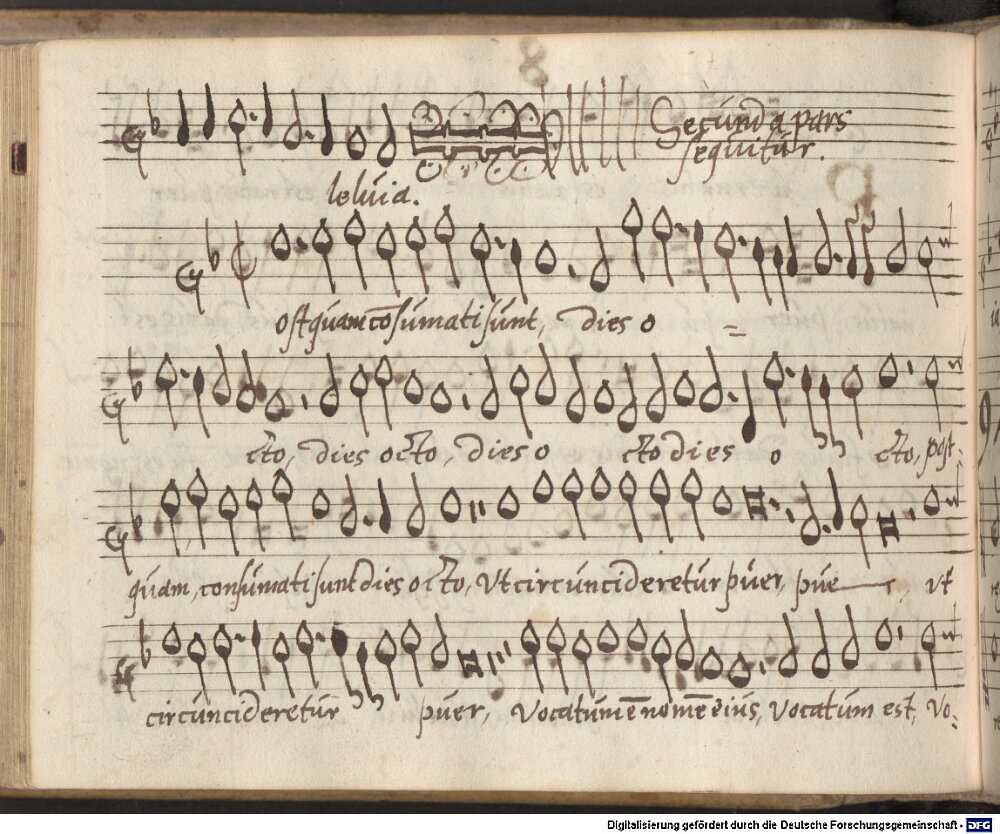 Secunda pars
sequitur.
leluia.
ostquam cōsumati sunt, dies o =
cto, dies octo, dies o cto dies o cto, post:
quam, consumati sunt dies octo, Ut circuncideretur puer, pue r, ut
circuncideretur puer, Vocatum ē nomē eius, Vocatum est, Vo:
Digitalisierung gefördert durch die Deutsche Forschungsgemeinschaft - DFG